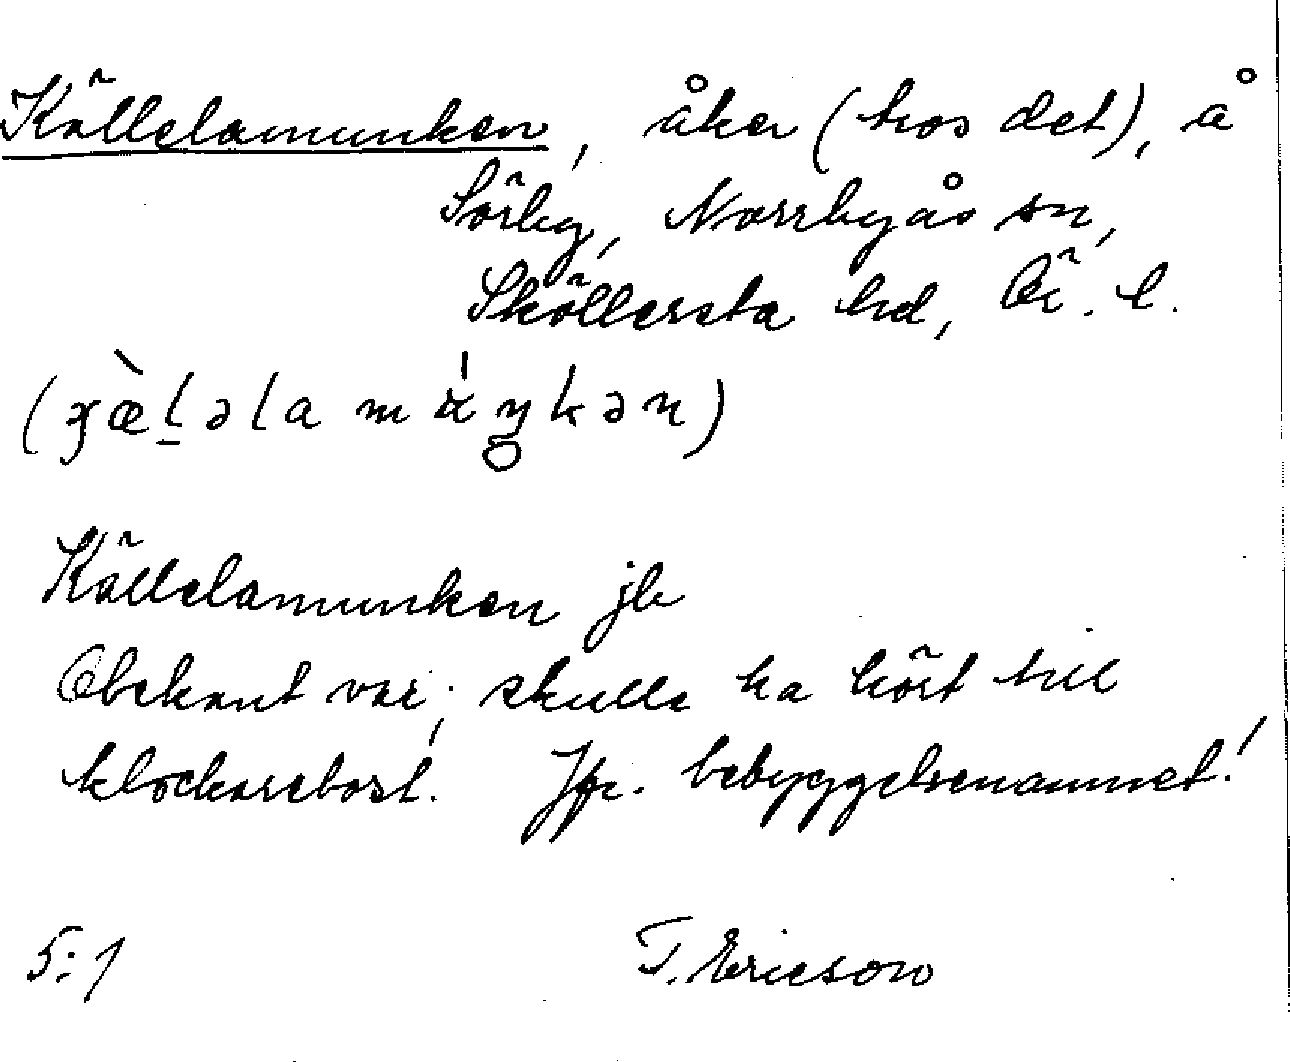 Källelamunken, åker (hos det), å
Sörby, Norrbyås sn,
Sköllersta hd, Ör. l.
Källelamunken jb
Obekant var; skulle ha hört till
klockarebost. Jfr. bebyggelsenamnet!
5:1 T. Ericson